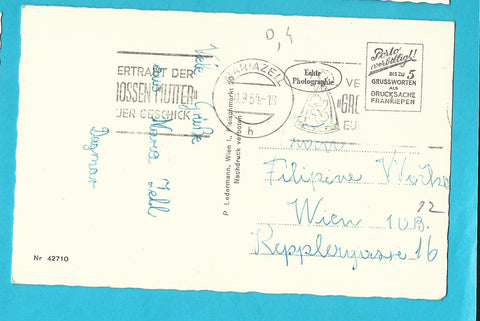 0,4
MARIAZELL
1.8.54-18
h
VERTRAUT DER
"GROSSEN MUTTER"
EUER GESCHICK
VE
"GRO
EU
Echte
Photographie
Porto
verbilligt!
BIS ZU 5
GRUSSWORTEN
ALS
DRUCKSACHE
FRANKIEREN
Viele Grüße
aus Maria Zell
Dagmar
P. Ledermann, Wien I., Fleischmarkt 20
Nachdruck verboten
Filipine
Wien 10 B.
12
Kepplergasse 16
Nr 42710